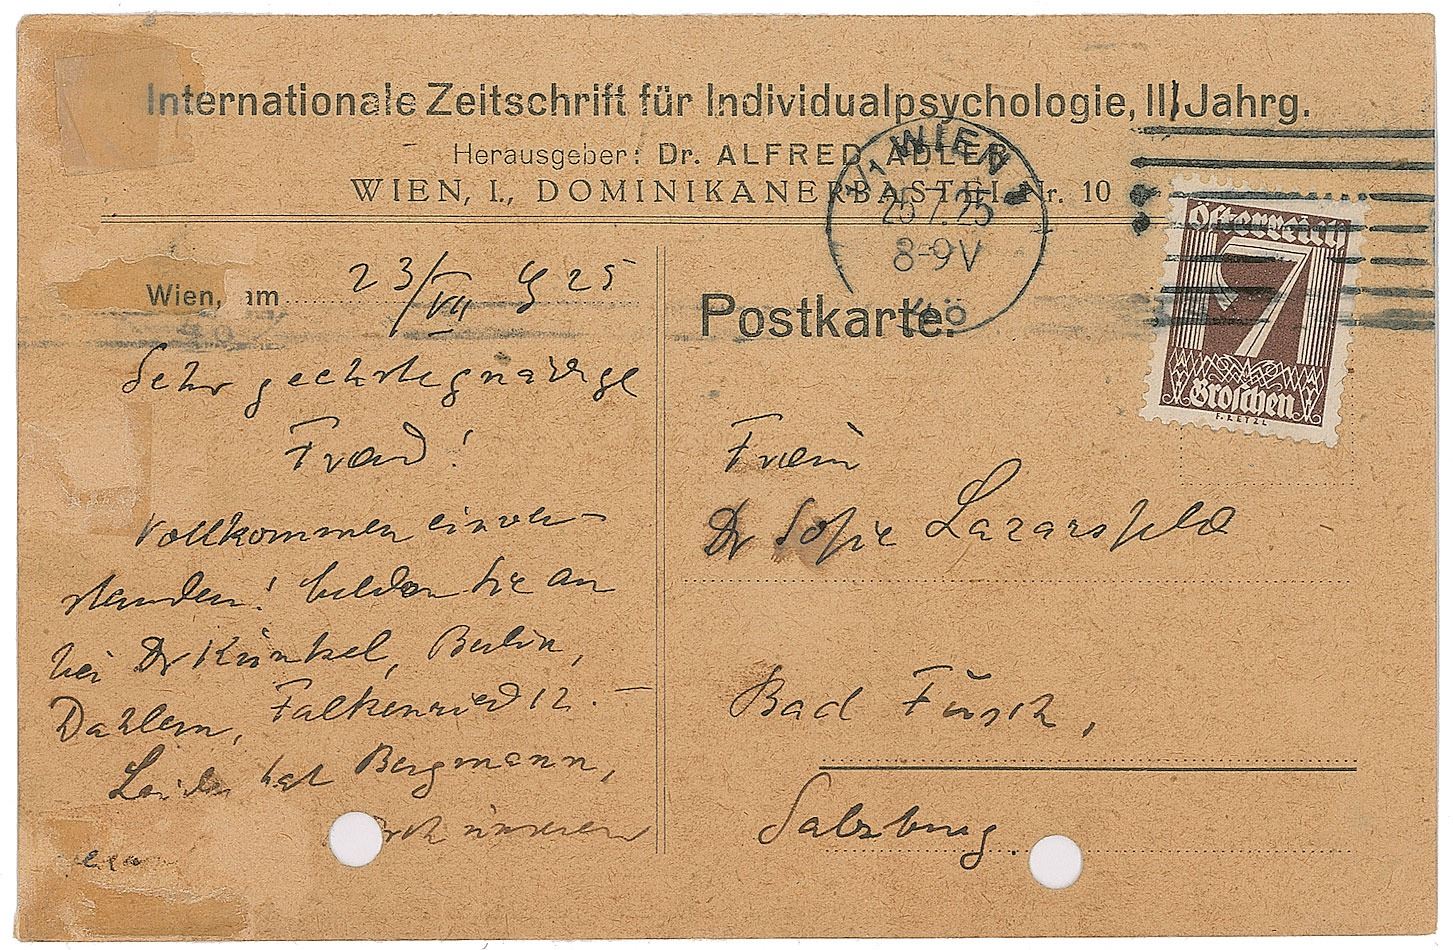 Internationale Zeitschrift für Individualpsychologie, III Jahrg.
Herausgeber: Dr. ALFRED ADLER
WIEN, I., DOMINIKANERBASTEI Nr. 10
WIEN
25 7. 25
8-9V
Österreich
7
Groschen
Wien, am 23/VII 925
Postkarte.
Sehr geehrte gnädige
Frau!
Vollkommen einver-
standen! Melden Sie an
bei Dr Künkel, Berlin,
Dahlem, Falkenried 12. —
Leider hat Bergmann,
unseren
Frau
Dr Sofie Lazarsfeld
Bad Fusch,
Salzburg.